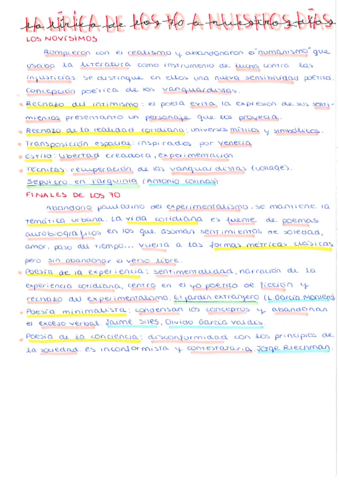 LA LÍRICA de los 70 a nuestros días
LOS NOVÍSIMOS
Rompieron con el realismo y abandonaron el "humanismo" que
usaba la literatura como instrumento de lucha contra las
injusticias. se distingue en ellos una nueva sensibilidad poética.
Concepción poética de los vanguardistas.
Rechazo del intimismo: el poeta evita la expresión de sus senti-
mientos presentando un personaje que los proyecta.
Rechazo de la realidad cotidiana: universos míticos y simbólicos.
Transposición espacial: inspirados por Venecia
Estilo: libertad creadora, experimentación
Técnicas: recuperación de las vanguardistas (collage).
Sepulcro en Tarquinia (Antonio Colinas)
FINALES DE LOS 70
Abandono paulatino del experimentalismo. se mantiene la
temática urbana. La vida cotidiana es fuente de poemas
autobiográficos en los que asoman sentimientos de soledad,
amor, paso del tiempo... vuelta a las formas métricas clásicas
pero sin abandonar el verso libre.
Poesía de la experiencia: sentimentalidad, narración de la
experiencia cotidiana, centro en el yo poético de ficción y
rechazo del experimentalismo. El jardín extranjero (L. García Montero)
Poesía minimalista: condensan los conceptos y abandonan
el exceso verbal. Jaime Siles,
Poesía de la conciencia: disconformidad con los principios de
la sociedad es inconformista y contestataria, Jorge Riechman.